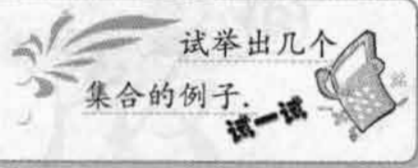 试举出几个
集合的例子.
试一试